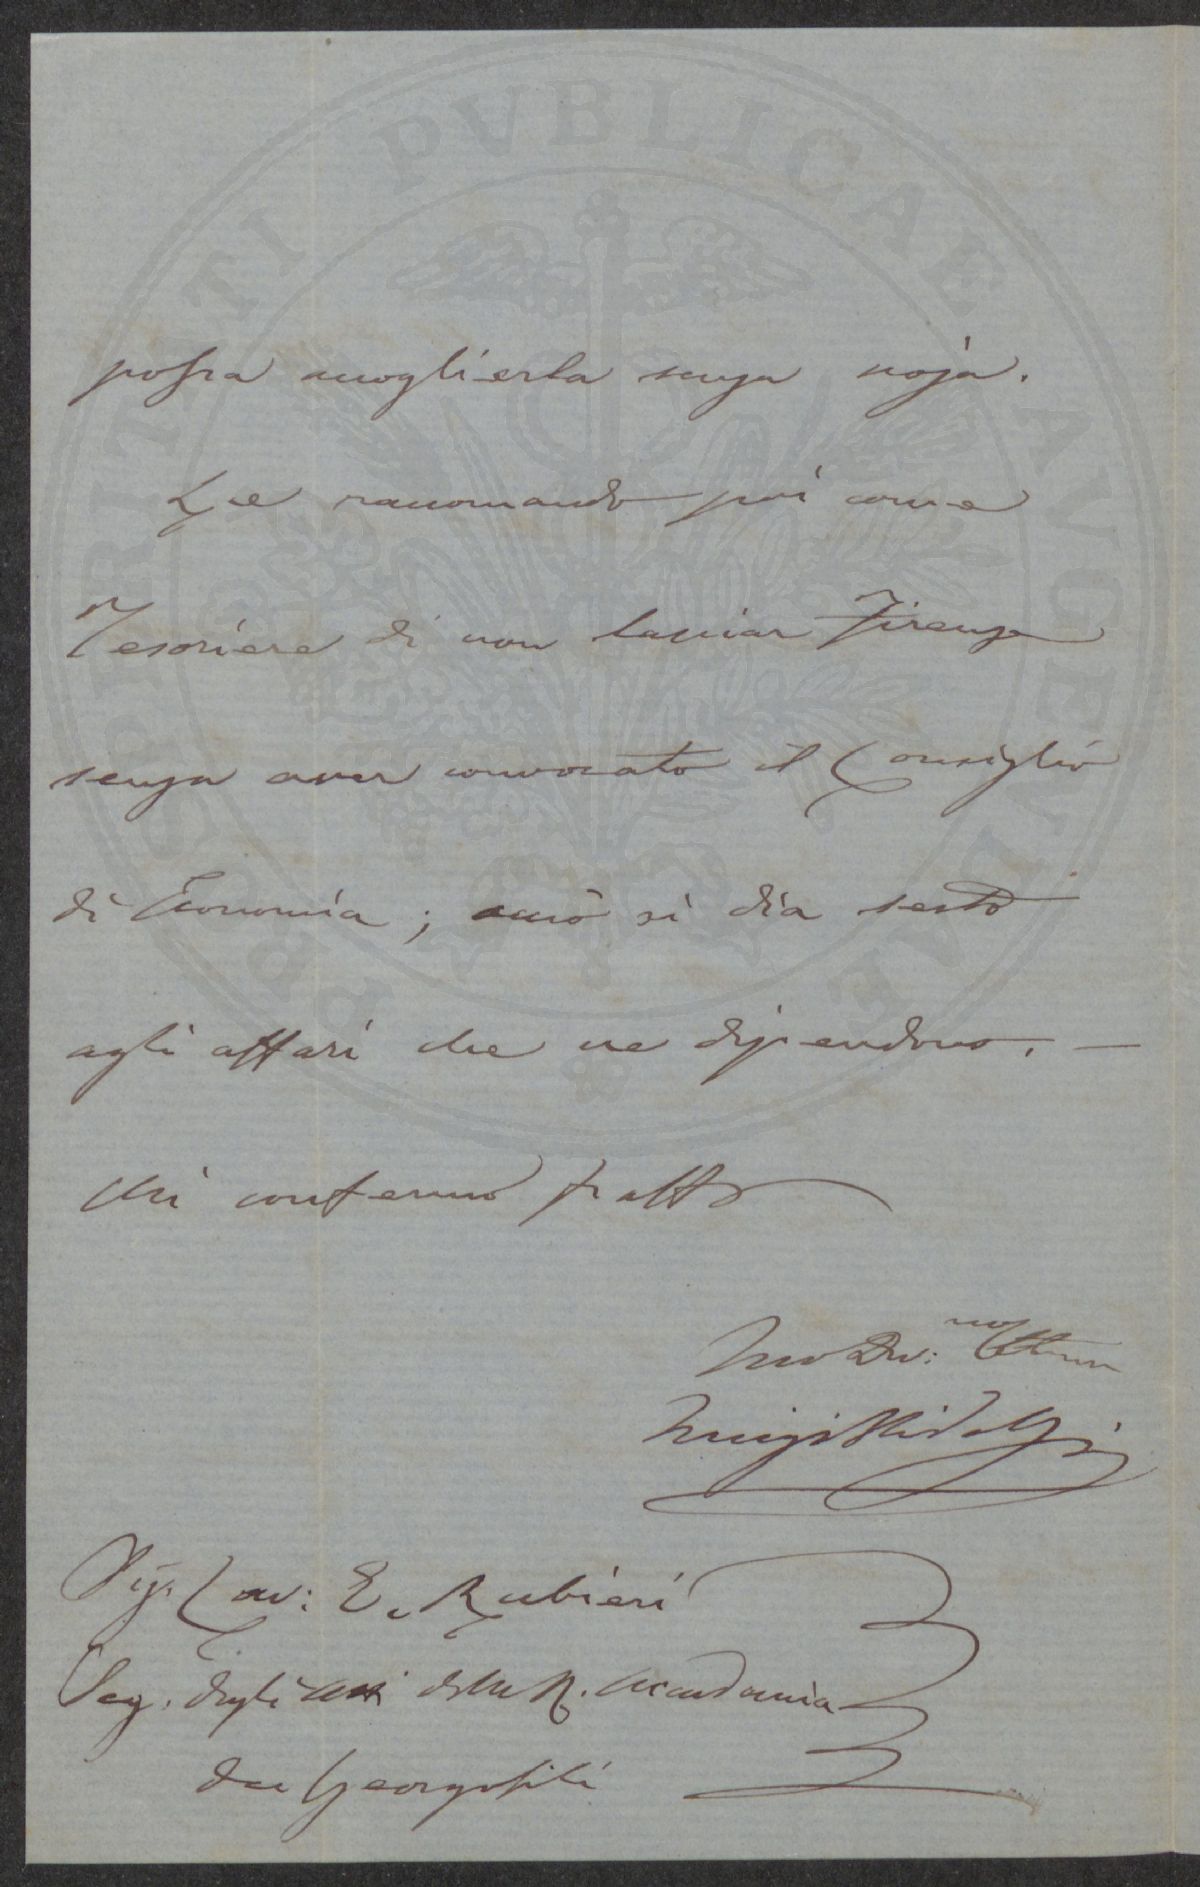 PROSPERITATI PVBLICAE AVGENDAE
possa accoglierla senza noja.
Le raccomando poi come
Tesoriere di non lasciar Firenze
senza aver convocato il Consiglio
di Economia; acciò si dia sesto
agli affari che ne dipendono. —
Mi confermo frattº
Suo Dev:mo
Luigi Ridolfi
Sig. Cav: E. Rubieri
Seg. degli Atti della R. Accademia
dei Georgofili